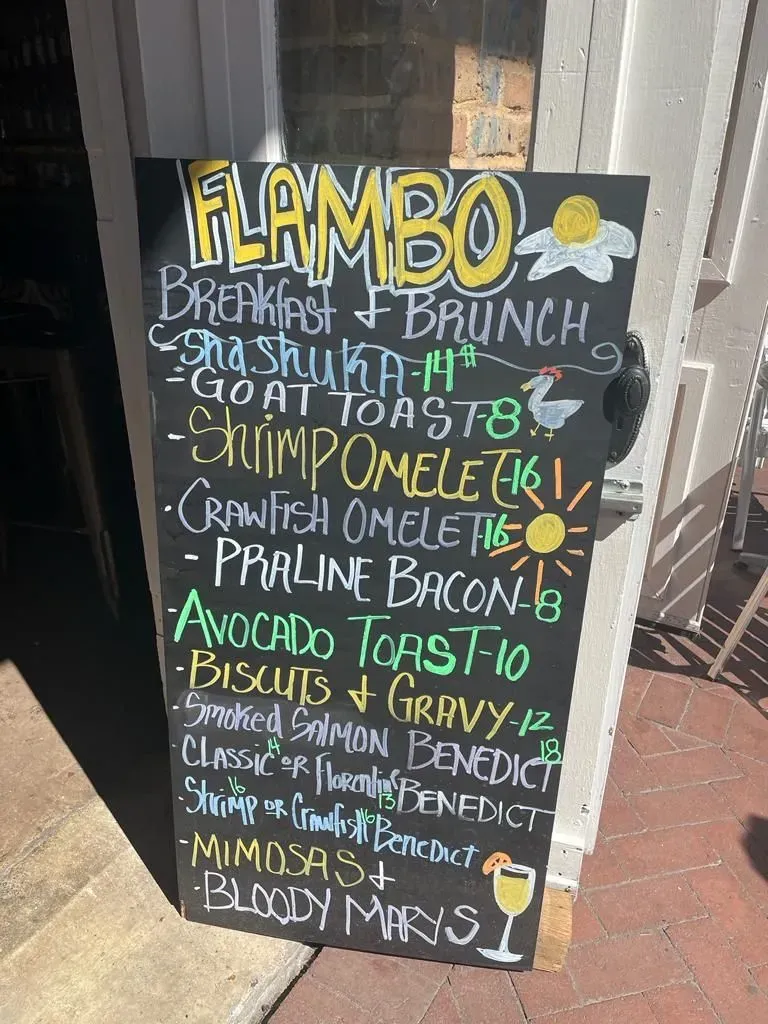 FLAMBO
BREAKfAST & BRUNCH
- ShaShuKA - 14$
- GOAT TOAST - 8
- Shrimp OMELET - 16
· CRAWFISH OMELET - 16
- PRALINE BACON - 8
· AVOCADO TOAST - 10
· BISCUITS & GRAVY - 12
· Smoked SALMON BENEDICT 18
· CLASSIC 14 OR Florentine 13 BENEDICT
· Shrimp 16 OR Crawfish 16 Benedict
- MIMOSAS &
· BLOODY MARYS